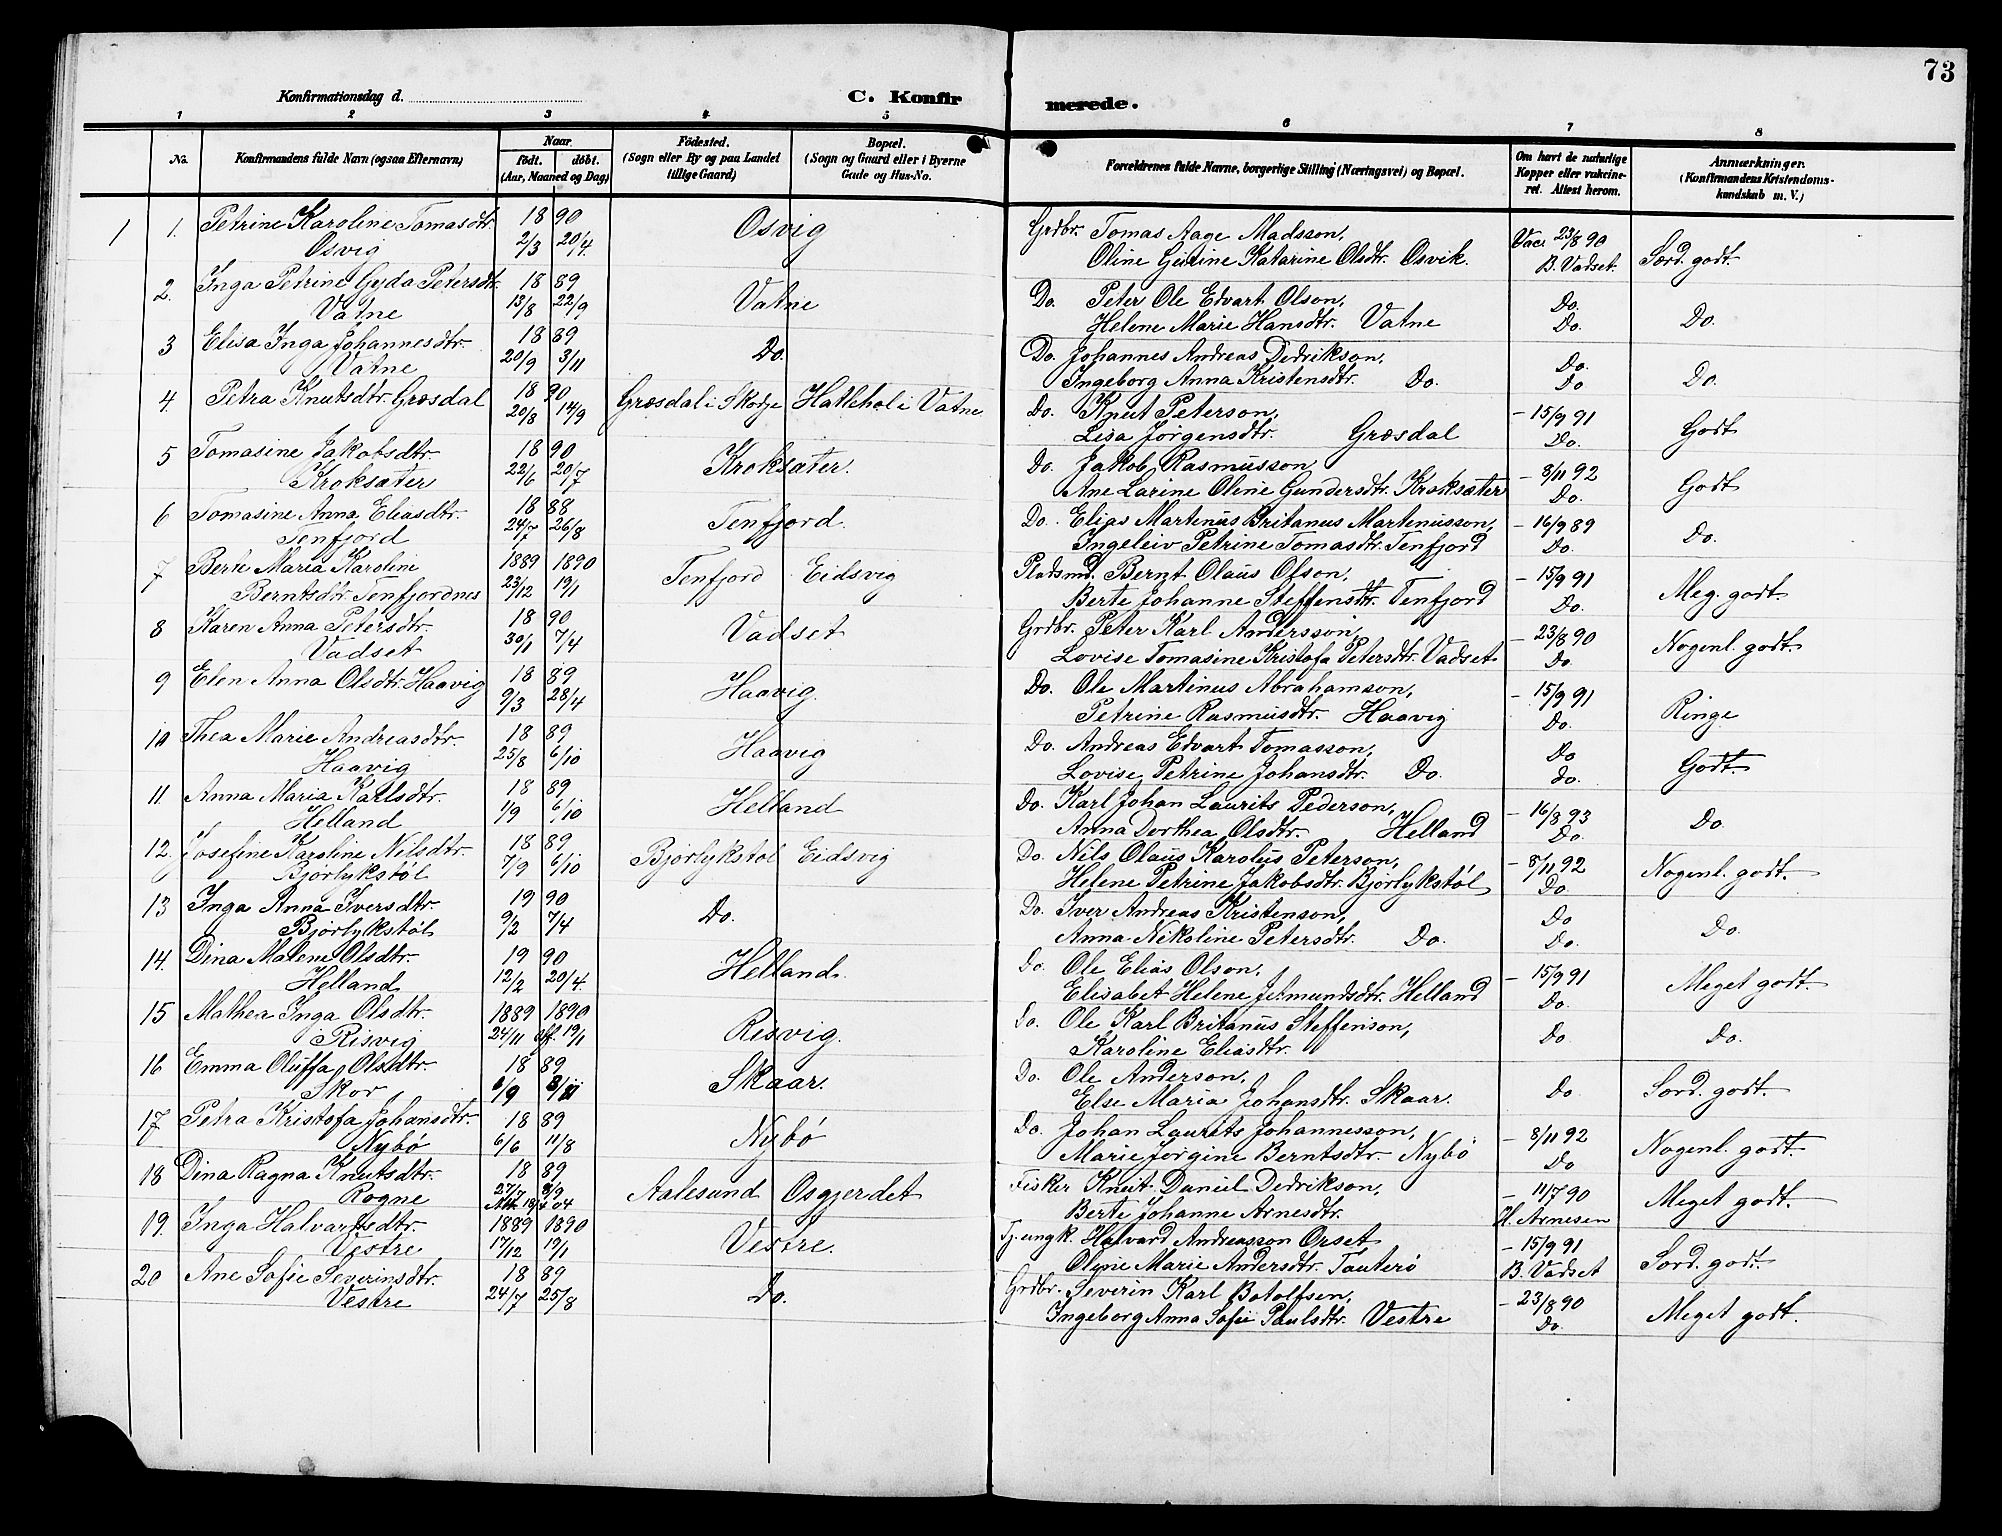 73
Konfirmationsdag d.
C. Konfirmerede.
1 2 3 4 5 6 7 8
No. Konfirmandens fulde Navn (ogsaa Efternavn) Naar født. døbt. (Aar, Maaned og Dag) Födested. (Sogn eller By og paa Landet tillige Gaard) Bopæl. (Sogn og Gaard eller i Byerne Gade og Hus-No. Forældrenes fulde Navne, borgerlige Stilling (Næringsvei) og Bopæl. Om havt de naturlige Kopper eller vakcineret. Attest herom. Anmærkninger. (Konfirmandens Kristendomskundskab m. V.)
1 1. Petrine Karoline Tomasdtr. 18 90 Osvig Grdbr. Tomas Aage Madsson, Vac. 23/8 90 Særd. godt.
Osvig 2/3 20/4 Oline Gurine Katarine Olsdtr. Osvik. B. Vadset.
2. Inga Petrine Gyda Petersdtr. 18 89 Vatne Do. Peter Ole Edvart Olson, Do. Do.
Vatne 13/8 22/9 Helene Marie Hansdtr. Vatne Do.
3 Elisa Inga Johannesdtr. 18 89 Do. Do. Johannes Andreas Dedrikson, Do. Do.
Vatne 20/9 3/11 Ingeborg Anna Kristensdtr. Do. Do
4. Petra Knutsdtr. Græsdal 18 90 Græsdal i Skodje Hatlehol i Vatne Do. Knut Peterson, - 15/9 91 Godt
20/8 14/9 Lisa Jørgensdtr. Græsdal Do.
5 Tomasine Jakobsdtr. 18 90 Kroksæter. Do. Jakob Rasmusson, - 8/11 92 Godt
Kroksæter 22/6 20/7 Ane Larine Oline Gundersdtr. Kroksæter Do.
6 Tomasine Anna Eliasdtr. 18 88 Tenfjord. Do. Elias Martenus Britanus Martenusson, - 16/9 89 Do.
Tenfjord 24/7 26/8 Ingeleiv Petrine Tomasdtr. Tenfjord Do.
7 Berte Maria Karoline 1889 1890 Tenfjord Eidsvig Pladsmd. Bernt Olaus Olson, - 15/9 91 Meg. godt.
Berntsdtr. Tenfjordnes 23/12 19/1 Berte Johanne Steffensdtr. Tenfjord Do.
8 Karen Anna Petersdtr. 18 90 Vadset Grdbr. Peter Karl Andersson, - 23/8 90 Nogenl. godt.
Vadset 30/1 7/4 Lovise Tomasine Kristofa Petersdtr. Vadset Do.
9 Elen Anna Olsdtr. Haavig 18 89 Haavig. Do. Ole Martinus Abrahamson, - 15/9 91 Ringe
9/3 28/4 Petrine Rasmusdtr. Haavig Do.
10 Thea Marie Andreasdtr. 18 89 Haavig Do. Andreas Edvart Tomasson, Do Godt.
Haavig 25/8 6/10 Lovise Petrine Johansdtr. Do. Do.
11. Anna Maria Karlsdtr. 18 89 Helland Do. Karl Johan Laurits Pederson, - 16/8 93 Do.
Helland 1/9 6/10 Anna Dorthea Olsdtr. Helland Do.
12. Josefine Karoline Nilsdtr. 18 89 Bjørlykstøl Eidsvig Do. Nils Olaus Karolus Peterson, - 8/11 92 Nogenl. godt.
Bjørlykstøl 7/9 6/10 Helene Petrine Jakobsdtr. Bjørlykstøl Do.
13 Inga Anna Iversdtr. 19 90 Do. Do. Iver Andreas Kristenson, Do Do.
Bjørlykstøl 9/2 7/4 Anna Nikoline Petersdtr. Do. Do.
14. Dina Malene Olsdtr. 19 90 Helland. Do. Ole Elias Olson, - 15/9 91 Meget godt.
Helland 12/2 20/4 Elisabet Helene Jetmundsdtr. Helland Do.
15 Mathea Inga Olsdtr. 1889 1890 Risvig. Do. Ole Karl Britanus Steffenson, Do Do.
Risvig 24/11 19/1 Karoline Eliasdtr.
16 Emma Oluffa Olsdtr. 18 89 Skaar. Do. Ole Anderson, Do Sørd. godt.
Skor /9 3/11 Else Maria Johansdtr. Skaar.
17 Petra Kristofa Johansdtr. 18 89 Nybø Do. Johan Laurits Johannesson, - 8/11 92 Nogenl. godt.
Nybø 6/6 11/8 Marie Jørgine Berntsdtr. Nybø Do
18 Dina Ragna Knutsdtr. 18 89 Aalesund Osgjerdet Fisker Knut Daniel Dedrikson, - 11/7 90 Meget godt.
Rogne 27/7 Berte Johanne Arnesdtr. H. Arnesen
19. Inga Halvardsdtr. 1889 1890 Vestre. Tj. ungk. Halvard Andreasson Orset - 15/9 91 Sørd. godt.
Vestre 17/12 19/1 Oline Marie Andersdtr. Tauterø B. Vadset
20 Ane Sofie Severinsdtr. 18 89 Do. Grdbr. Severin Karl Botolfsen, - 23/8 90 Meget godt.
Vestre 24/7 25/8 Ingeborg Anna Sofie Paulsdtr. Vestre Do.